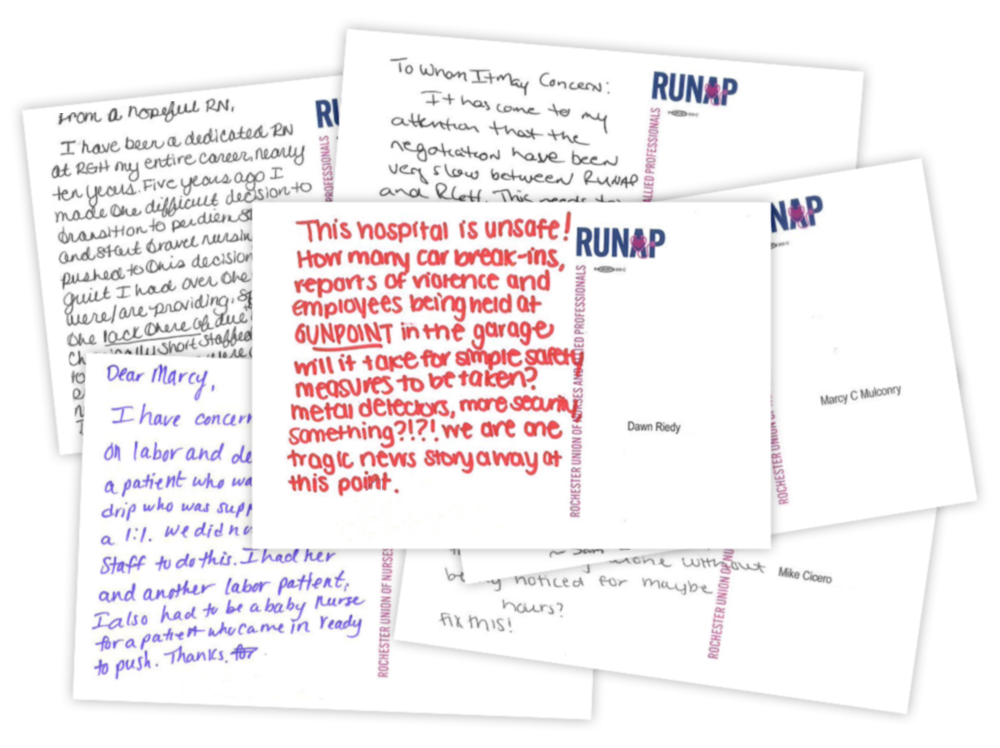 From a hopeful RN,
I have been a dedicated RN
at RGH my entire career, nearly
ten years. Five years ago I
made the difficult decision to
transition to per diem
and start travel
pushed to this decision
guilt I had over the
were/are providing,
the lack there of due
short staffed
to
RU
PROFESSIONALS
To Whom It May Concern:
It has come to my
attention that the
negotiation have been
very slow between RUNAP
and RGH. This needs to
RUNAP
ALLIED PROFESSIONALS
This hospital is unsafe!
How many car break-ins,
reports of violence and
employees being held at
GUNPOINT in the garage
will it take for simple safety
measures to be taken?
metal detectors, more security,
something?!?! we are one
tragic news story away at
this point.
RUNAP
ROCHESTER UNION OF NURSES AND ALLIED PROFESSIONALS
Dawn Riedy
NAP
ROCHESTER UNION OF NURSES
Marcy C Mulconry
Dear Marcy,
I have concern
on labor and de
a patient who wa
drip who was supp
a 1:1. We did no
staff to do this. I had her
and another labor patient,
I also had to be a baby nurse
for a patient who came in ready
to push. Thanks. for
ROCHESTER UNION OF NURSES
~ Sam
alone without
noticed for maybe
hours?
Fix this!
ROCHESTER UNION OF NU
Mike Cicero